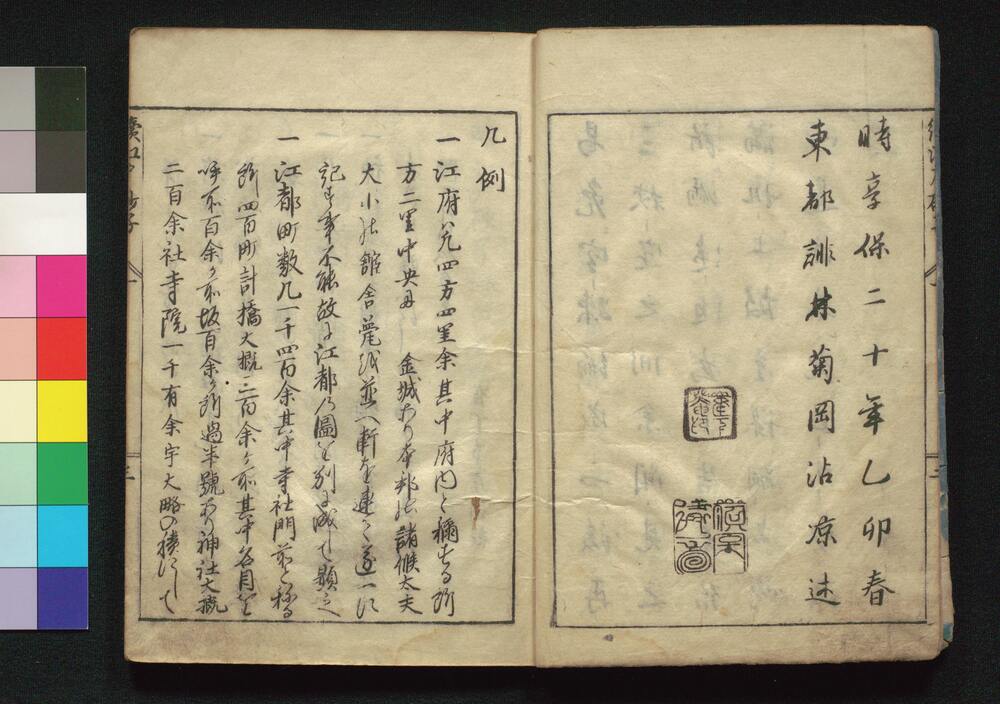 時享保二十年乙卯春
東都誹林菊岡沾凉述
凡例
一江府ハ凡四方四里余其中府内と稱する所
方二里中央ᅠ金城あり本邦の諸候太夫
大小の館舎甍を並へ軒を連て逐一に
記す事不能故に江都の圖を別に減して顕之
一江都町数凡一千四百余其中寺社門前と称る
所四百町計橋大概三百余ケ所其中名目を
呼所百余ケ所坂百余ケ所過半號あり神社大概
二百余社寺院一千有余宇大略の積にして
續江戸砂子
一
三